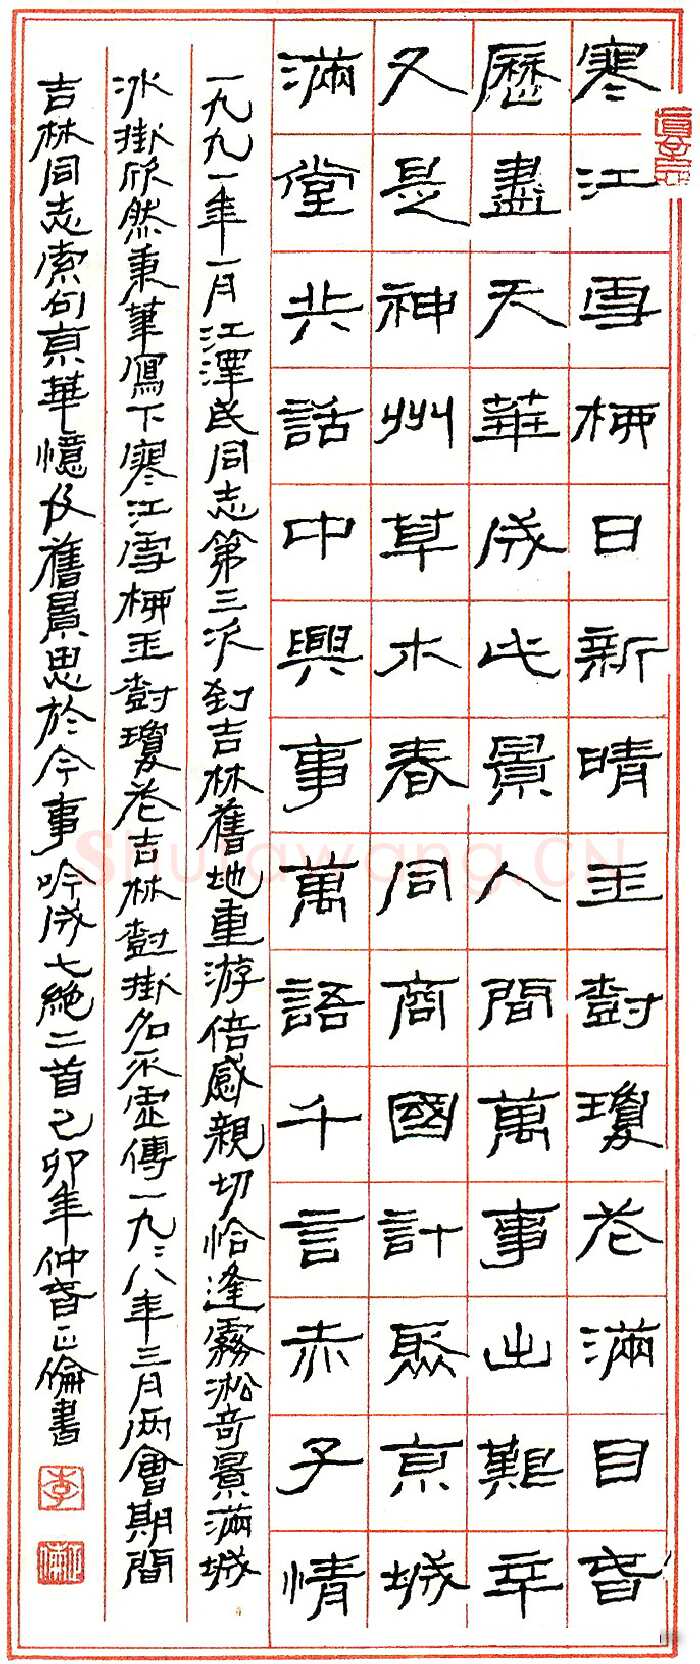 寒江雪柳日新晴玉樹瓊花滿目春
歷盡天華成此景人間萬事出艱辛
又是神州草木春同商國計聚京城
滿堂共話中興事萬語千言赤子情
一九九一年一月江澤民同志第三次到吉林舊地重游倍感親切恰逢霧淞奇景滿城
冰掛欣然秉筆寫下寒江雪柳玉樹瓊花吉林樹掛名不虛傳一九九八年三月兩會期間
吉林同志索句京華憶及舊景思於今事吟成七絕二首己卯年仲春正倫書
李
Shufawang.CN